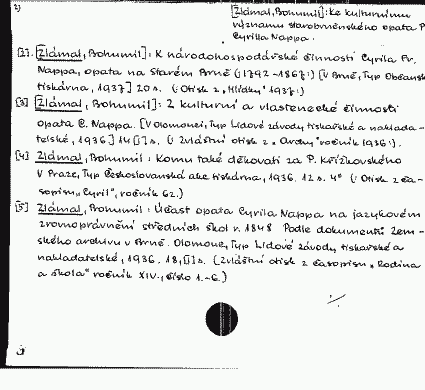 2)
[Zlámal, Bohumil]: Ke kulturnímu
významu starobrněnského opata P.
Cyrilla Nappa.
[2]. [Zlámal, Bohumil]: K národohospodářské činnosti Cyrila Fr.
Nappa, opata na Starém Brně (:1792-1867:) [V Brně, Typ Občansk
tiskárna, 1937] 20 s. (: Otisk z „Hlídky" 1937:)
[3] [Zlámal, Bohumil]: Z kulturní a vlastenecké činnosti
opata C. Nappa. [V Olomouci, Typ Lidové závody tiskařské a naklada-
telské, 1936] 14 [I] s. (: Zvláštní otisk z „Archy" ročník 1936:).
[4] Zlámal, Bohumil: Komu také děkovati za P. Křížkovského
V Praze, Typ Československá akc tiskárna, 1936. 12 s. 4° (: Otisk z ča-
sopisu „Cyril", ročník 62.)
[5] Zlámal, Bohumil: Účast opata Cyrila Nappa na jazykovém
zrovnoprávnění středních škol r. 1848 Podle dokumentů Zem-
ského archivu v Brně. Olomouc, Typ Lidové závody tiskařské a
nakladatelské, 1936. 18, [I] s. (Zvláštní otisk z časopisu „Rodina
a škola" ročník XIV., číslo 1.-6.)